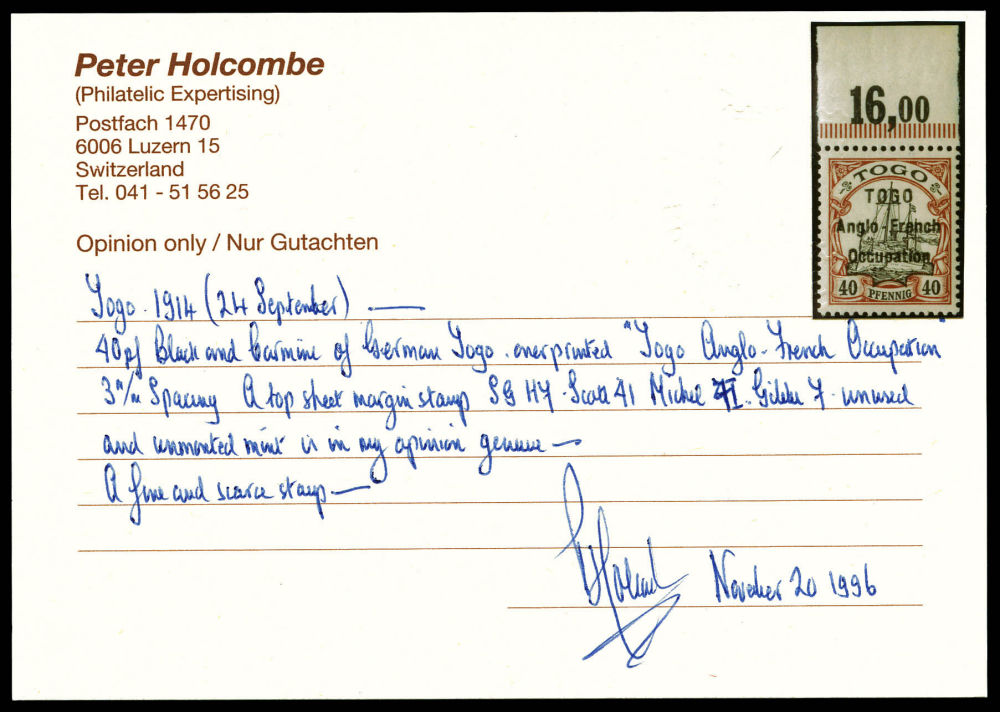 Peter Holcombe
(Philatelic Expertising)
Postfach 1470
6006 Luzern 15
Switzerland
Tel. 041 - 51 56 25
Opinion only / Nur Gutachten
16,00
TOGO
TOGO
Anglo-French
Occupation
40 PFENNIG 40
Togo. 1914 (24 September)
40pf Black and Carmine of German Togo. overprinted "Togo Anglo-French Occupation"
3m/m Spacing A top sheet margin stamp SG H7 - Scott 41 Michel I. Gibbs 7 - unused
and unmounted mint is in my opinion genuine
A fine and scarce stamp
November 20 1996